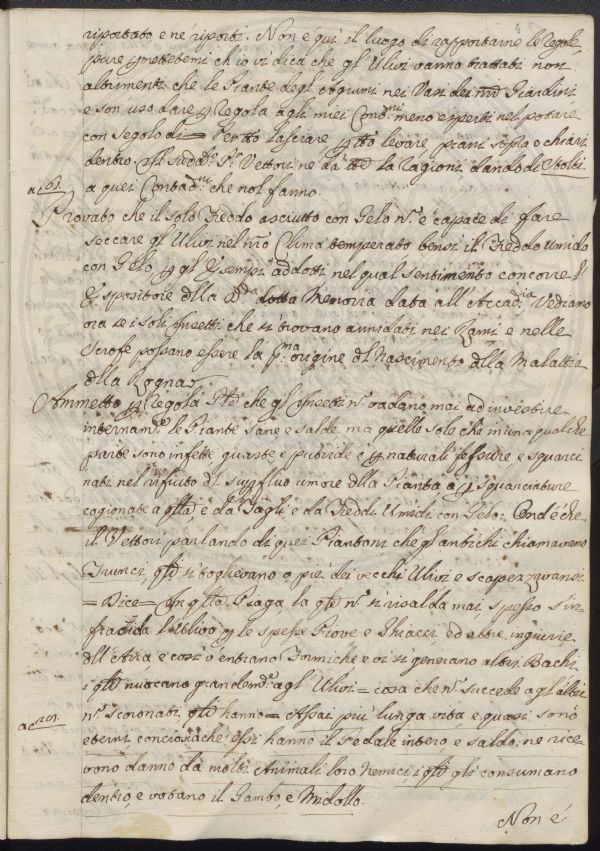 riportato e ne riporti. Non è quì il luogo di rapportarne le Regole
pure permettetemi ch'io vi dica che gl'Ulivi vanno trattati non
altrimenti che le Piante degl'Agrumi nei Vasi dei nrī Giardini,
e son uso dare p Regola agli miei Contni meno esperti nel potare
con segolo di = Per tto lasciare p tto levare piani sopra e chiari
dentro. Il sudd.º P. Vettori ne dà tte le ragioni dando di Stolti
ac 61. a quei Contadni che nol fanno.
Provato che il solo Freddo asciutto con Gelo n. è capace di fare
seccare gl'Ulivi nel nro Clima temperato bensì il Freddo umido
con Gelo, p gl'Esempi addotti nel qual sentimento concorre l'
Espositore dlla Dta dotta Memoria data all'Accadia, Vediamo
ora se i soli Insetti che si trovano annidati nei Rami e nelle
Scrofe possano essere la pma origine dl Nascimento dlla Malattia
dlla Rogna.
Ammetto p Regola Gle che gl'Insetti n. vadano mai ad investire
internamte le Piante sane e salde, ma quelle sole che in una qualche
parte sono infette guaste e putride e p naturali fessure e squarci
nati nel rifiuto dl suppfluo umore dlla Pianta o p squarciature
cagionate a qlla, e da Tagli e da Freddi Umidi con Gelo: Ond'è che
il Vettori parlando di quei Piantoni che gl'antichi chiamavano
Trunci, qli si toglievano a piè dei vecchi Ulivi e scapezzavansi
= Dice = In qlla Piaga la qle n. si risalda mai, spesso s'in
fradida l'Ulivo p le spesse Piove e Ghiacci ed altre ingiurie
dll'Aria e così v'entrano Formiche e vi si generano altri Bachi
i qli nuocano grandemte agl'Ulivi = cosa che n. succede agl'altri
n. scoronati, qli hanno = Assai più lunga vita e quasi sono
ac 101. eterni conciosiachè essi hanno il Pedale intero e saldo: ne rice-
vono danno da molti Animali loro Nemici, i qli gli consumano
dentro, e votano il Gambo, e Midollo.
Non è